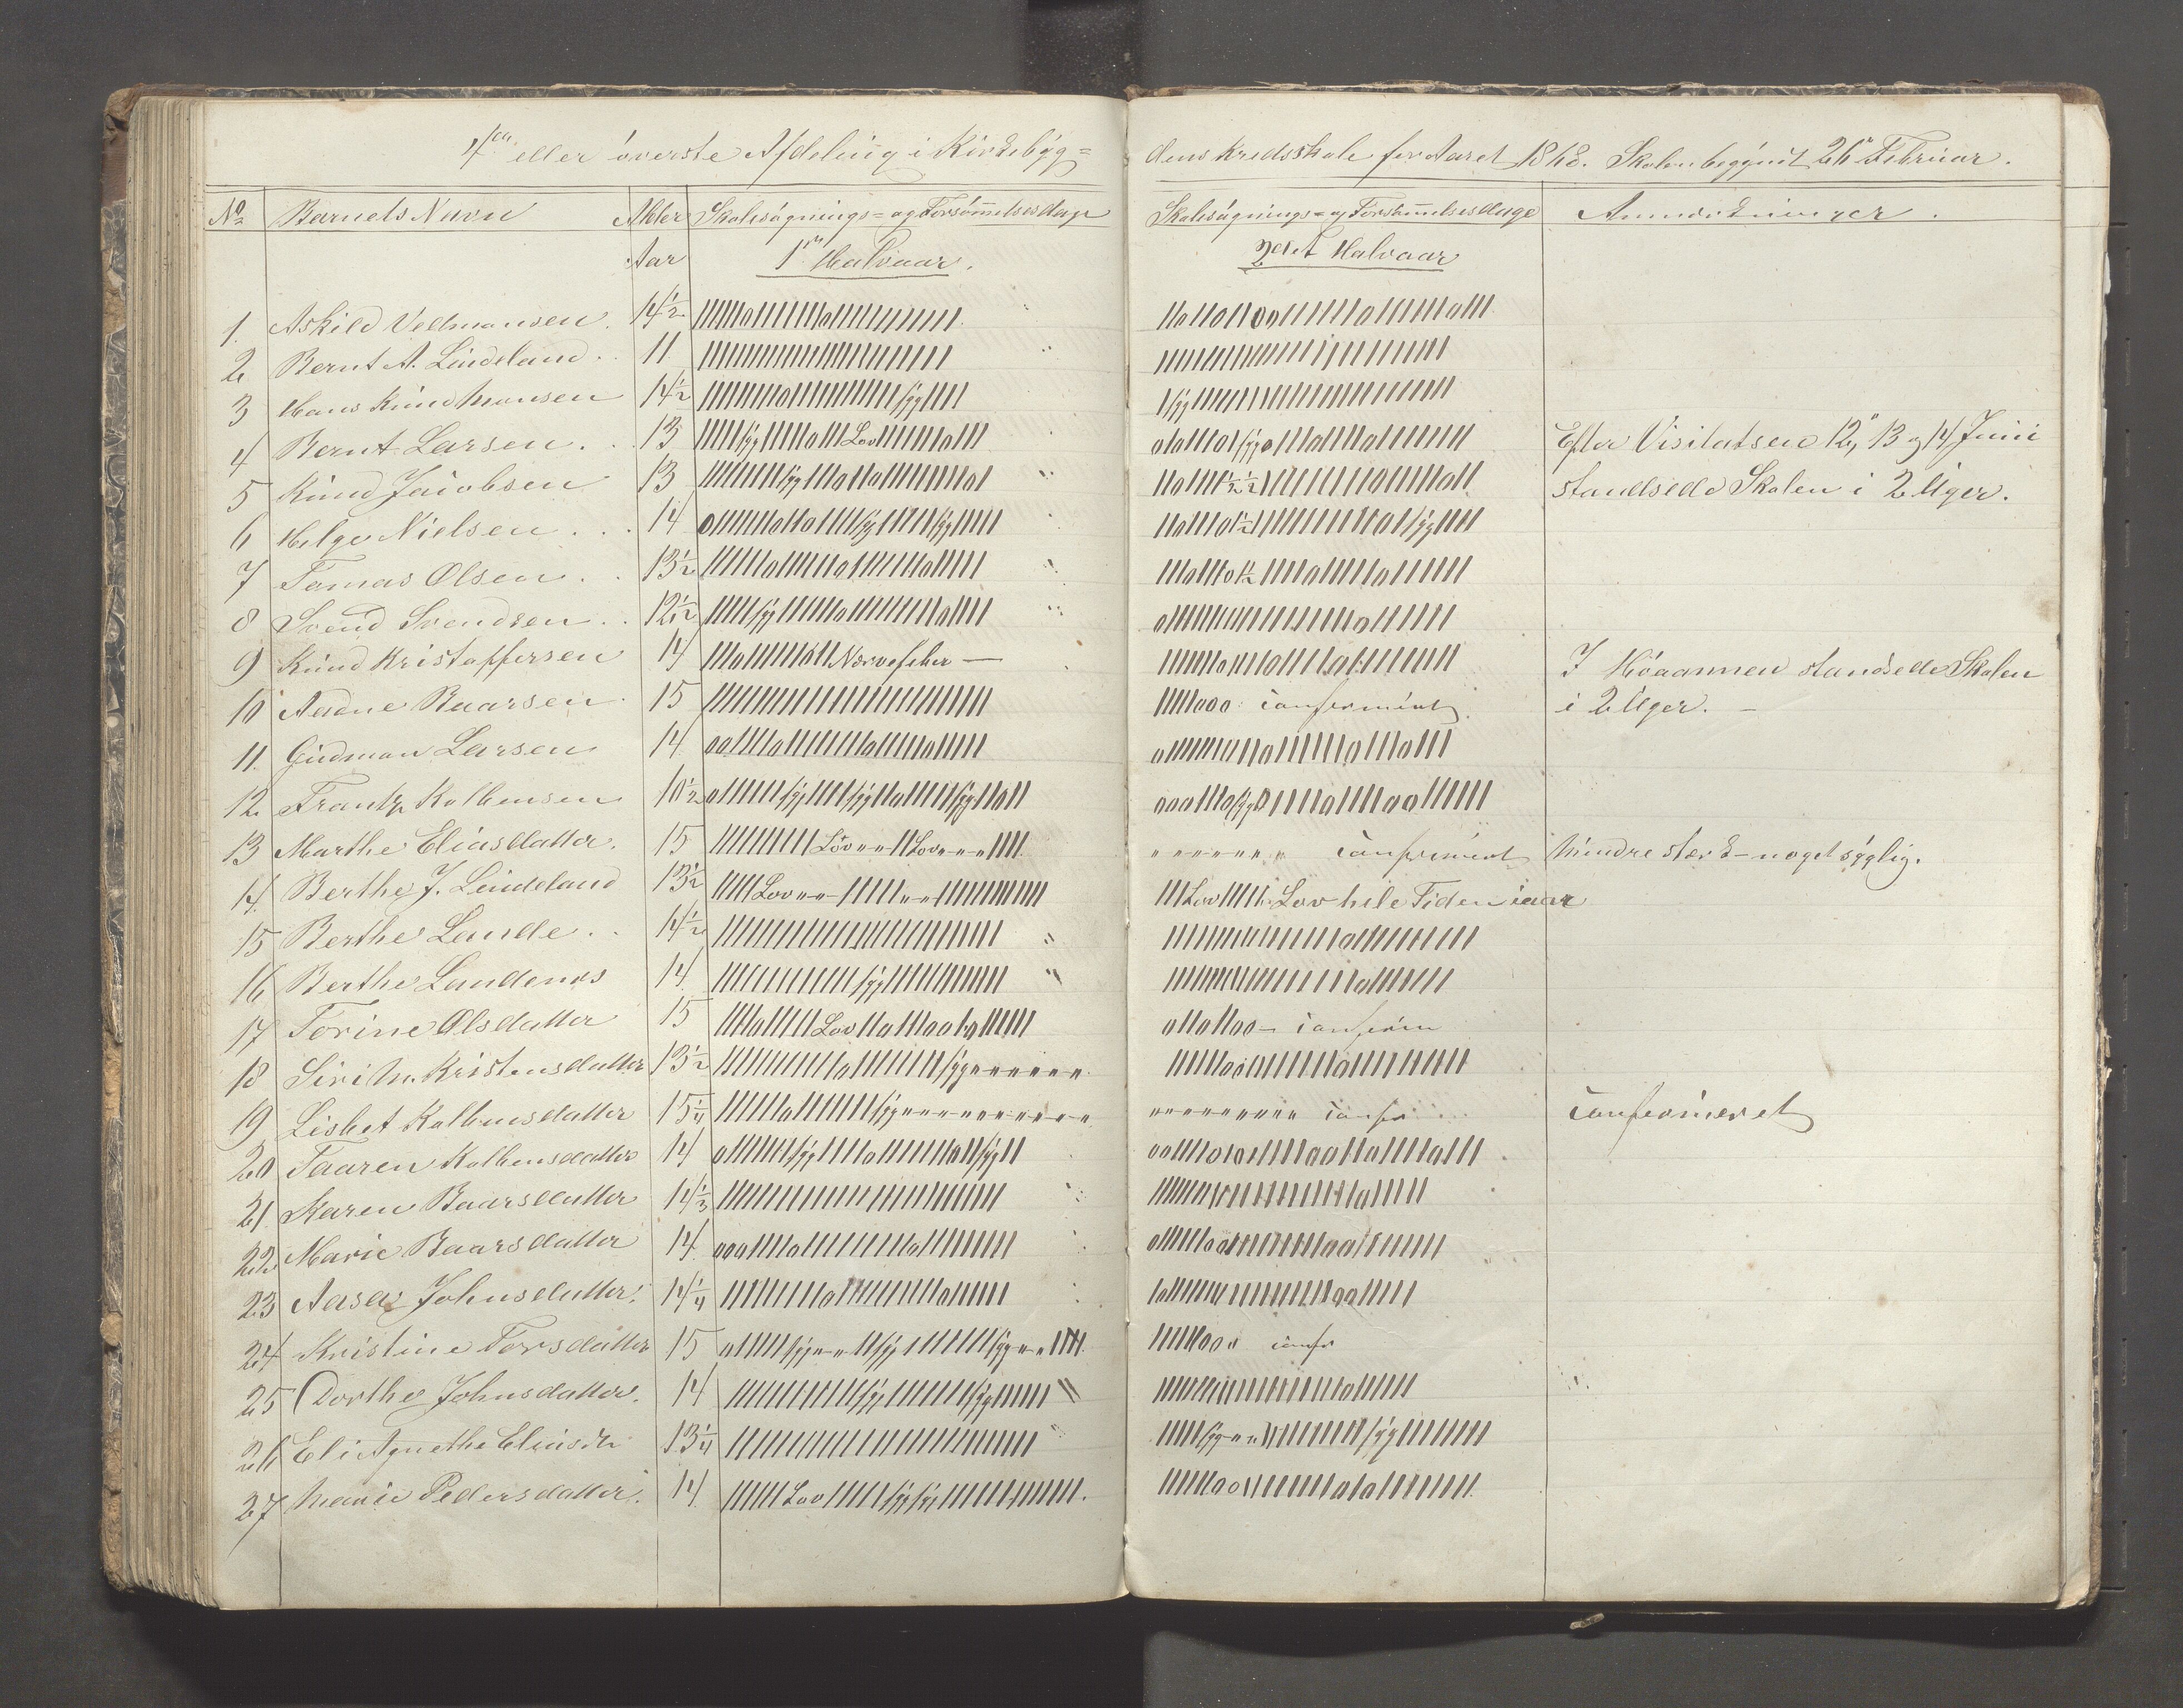 4de eller överste Afdeling i Kirkebÿg=
dens Kredsskole for Aaret 1868. Skolen begÿndt 26" Februar.
No Barnets Navn Alder Skolesögnings= og Forsömelsesdage Skolesögnings= og Forsömmelsesdage Anmærkninger.
Aar 1ste Halvaar. 2det Halvaar
1. Askild Vedmansen. 14 1/2
2 Bernt A. Lindeland. 11
3 Hans Knud Monsen 14 1/2 syg syg
4 Bernt Larsen. 13 syg Lov syg Efter Visitatsen 12, 13 og 14 Juni
5 Knud Jacobsen 13 syg 1/2 1/2 standsede Skolen i 2 Uger.
6 Helge Nielsen. 14 syg syg 1/2 syg
7 Tomas Olsen. 13 1/2 1/2
8 Svend Svendsen. 12 1/2 syg
9 Knud Kristoffersen 14 Nervefeber — I Höaannen standsede Skolen
10 Aadne Baarsen. 15 confermeret i 2 Uger. —
11. Gudman Larsen 14
12 Frantz Kolbensen 10 1/2 syg syg syg syg
13 Marthe Eliasdatter. 15 Lov " " Lov " " " " " " " " confermeret Mindre stærk – noget sÿglig.
14 Berthe J. Lindeland 13 1/2 Lov " " " " Lov Lov hele Tiden iaar
15 Berthe Lande.. 14 1/2
16 Berthe Landenes 14 syg
17 Torine Olsdatter 15 Lov conferm
18 Siri M. Kristensdatter 13 1/2 syg " " " " " "
19 Lisbet Kolbensdatter 15 1/4 syg " " " " " " " " " " " " " " " " " " confr confermeret
20 Taaren Kolbensdatter 14 syg syg
21 Karen Baarsdatter 14 1/3
22 Marie Baarsdatter 14
23 Aasa Johnsdatter. 14 1/4
24 Kristine Torsdatter 15 syg " " syg syg " " confr
25 Dorthe Johnsdatter. 14 syg syg
26 Eli Agnethe Eliasdtr 13 1/4 syg " " syg
27 Marie Pedersdatter. 14 Lov syg syg